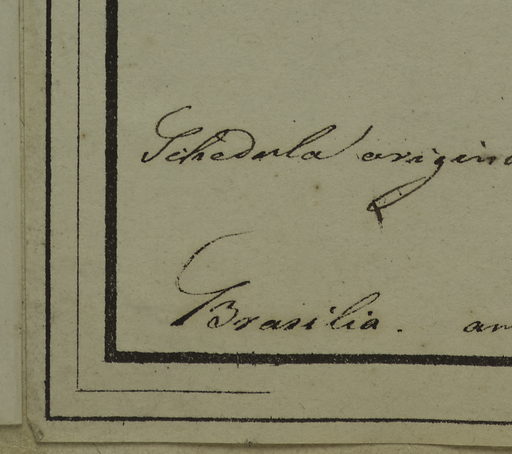 Schedula origina
Brasilia. am